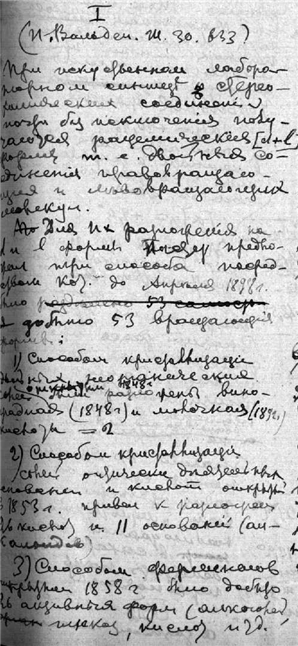 I
(П. Вальден. Ж. 30. 633)
При искуственном лабора-
торном синтезе стерео-
химическия соединения
почти без исключения полу-
чаются рацемическия [d+l]
формы т. е. двойныя со-
единения правовращаю-
щия и лововращающия
молекул.
Но для их разложения на
d и l формы Пастер предло-
жил три способа посред-
ством коих до Апреля 1898 г.
было разложено 53
добыто 53 вращающия
форм:
1) Способом кристаллизации
винo-
градная (1848 г) и молочная (1892)
кислоты = 2
2) Способом кристаллизации
солей оптически деятельных
оснований и кислот открыт
в 1853 г. привел к разложен.
кислот и 11 оснований (ал-
калоидов)
3) Способом ферментов
открытым 1858 г было добыто
активныя форм (алкоголей
кислот и др.